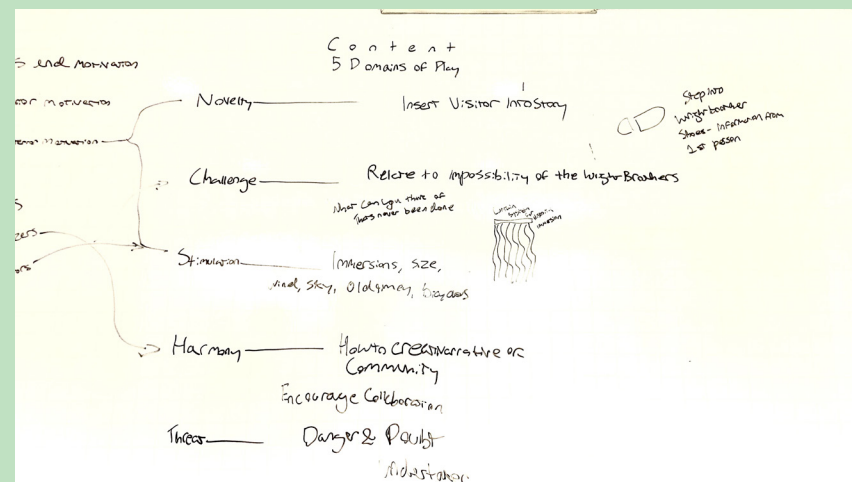 Content
5 Domains of Play
s and Motivation
tor motivation
Motivation
Novelty
Insert Visitor Into Story
Step into
Wright brother
Shoes - Information from
1st person
Challenge
Relate to impossibility of the Wright Brothers
What can you think of
that's never been done
s
zers
ors
Stimulation
Immersions, size,
wind, sky,
Harmony
How to create Narrative or
Community
Encourage Collaboration
Threat
Danger & Doubt